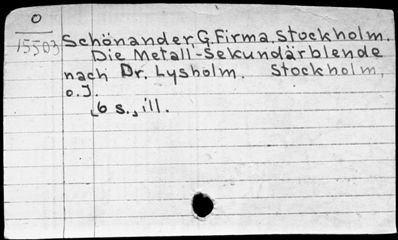 O
15503
Schönander, G. Firma, Stockholm.
Die Metall-Sekundärblende
nach Dr. Lysholm. Stockholm,
o.J.
6 s., ill.